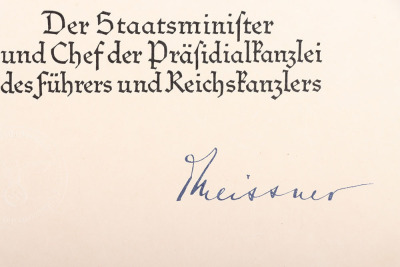 Der Staatsminister
und Chef der Präsidialkanzlei
des Führers und Reichskanzlers
Meissner